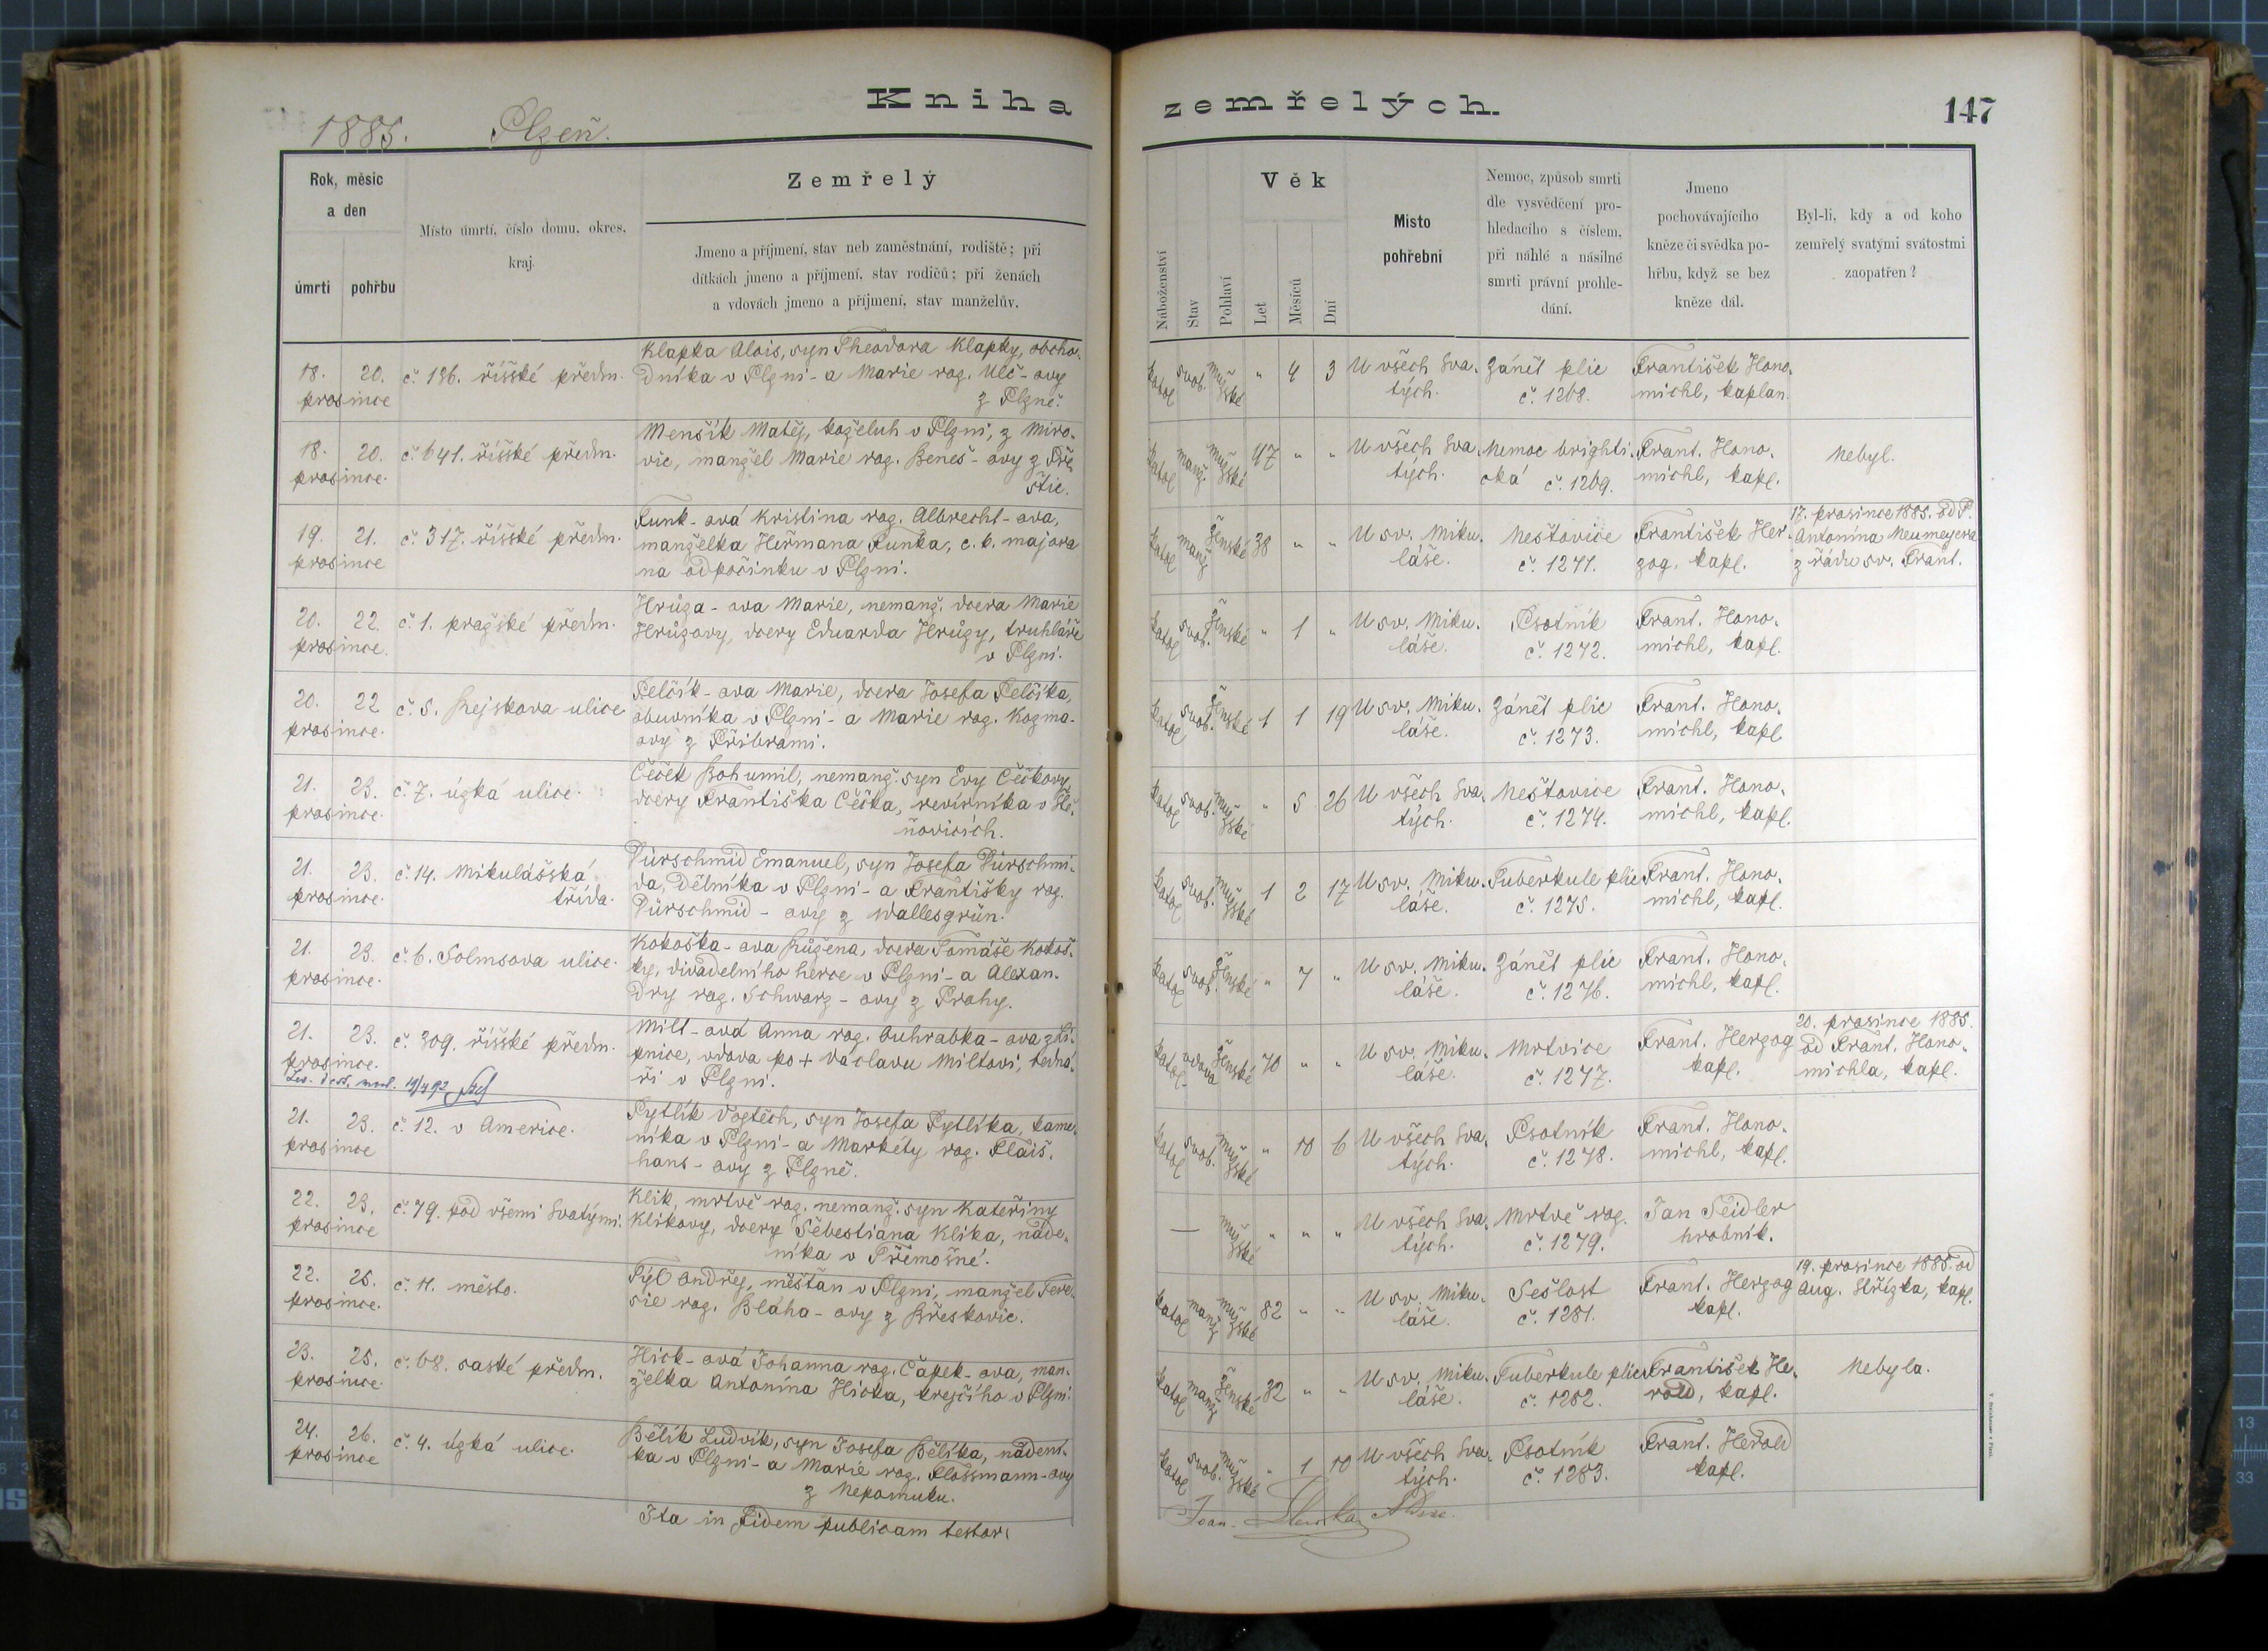 Kniha zemřelých.
147
1885. Plzeň.
Rok, měsíc
a den
úmrtí pohřbu
Místo úmrtí, číslo domu, okres,
kraj.
Zemřelý
Jmeno a příjmení, stav neb zaměstnání, rodiště; při
dítkách jmeno a příjmení, stav rodičů; při ženách
a vdovách jmeno a příjmení, stav manželův.
Náboženství
Stav
Pohlaví
Věk
Let
Měsíců
Dní
Místo
pohřební
Nemoc, způsob smrti
dle vysvědčení pro-
hledacího s číslem,
při náhlé a násilné
smrti právní prohle-
dání.
Jmeno
pochovávajícího
kněze či svědka po-
hřbu, když se bez
kněze dál.
Byl-li, kdy a od koho
zemřelý svatými svátostmi
zaopatřen?
18. 20.
prosince
č. 136. říšské předm.
Klapka Alois, syn Theodora Klapky, obcho-
dníka v Plzni - a Marie roz. Ulč-ovy
z Plzně.
katol svob. mužské " 4 3
U všech Sva-
tých.
Zánět plic
č. 1268.
František Hono-
michl, kaplan
18. 20.
prosince.
č. 641. říšské předm.
Menšík Matěj, koželuh v Plzni, z Miro-
vic, manžel Marie roz. Beneš-ovy z Pře-
štic.
katol manž. mužské 47 " "
U všech Sva-
tých.
Nemoc brighti-
cká č. 1269.
Frant. Hono-
michl, kapl.
Nebyl.
19. 21.
prosince
č. 317. říšské předm.
Funk-ová Kristina roz. Albrecht-ova,
manželka Heřmana Funka, c. k. majora
na odpočinku v Plzni.
katol manž ženské 38 " "
U sv. Miku-
láše.
Neštovice
č. 1271.
František Her-
zog, kapl.
17. prosince 1885. od P.
Antonína Neumeyera
z řádu sv. Frant.
20. 22.
prosince.
č. 1. pražské předm.
Hrůza-ova Marie, nemanž. dcera Marie
Hrůzovy, dcery Eduarda Hrůzy, truhláře
v Plzni.
katol svob. ženské " 1 "
U sv. Miku-
láše.
Psotník
č. 1272.
Frant. Hono-
michl, kapl.
20. 22
prosince.
č. 5. Rejskova ulice
Pelčík-ova Marie, dcera Josefa Pelčíka,
obuvníka v Plzni - a Marie roz. Kozma-
ovy z Příbrami.
katol svob. ženské 1 1 19
U sv. Miku-
láše.
Zánět plic
č. 1273.
Frant. Hono-
michl, kapl
21. 23.
prosince.
č. 7. úzká ulice.
Čeček Bohumil, nemanž. syn Evy Čečkovy,
dcery Františka Čečka, revírníka v
ňovicích.
katol svob. mužské " 5 26
U všech Sva-
tých.
Neštovice
č. 1274.
Frant. Hono-
michl, kapl.
21. 23.
prosince.
č. 14. Mikulášská
třída.
Dürschmid Emanuel, syn Josefa Dürschmi-
da, dělníka v Plzni - a Františky roz.
Dürschmid-ovy z Wallesgrün.
katol svob. mužské 1 2 17
U sv. Miku-
láše.
Tuberkule plic
č. 1275.
Frant. Hono-
michl, kapl.
21. 23.
prosince.
č. 6. Solmsova ulice.
Kokoška-ova Růžena, dcera Tomáše Kokoš-
ky, divadelního herce v Plzni - a Alexan-
dry roz. Schwarz-ovy z Prahy.
katol svob. ženské " 7 "
U sv. Miku-
láše.
Zánět plic
č. 1276.
Frant. Hono-
michl, kapl.
21. 23.
prosince.
č. 309. říšské předm.
Milt-ová Anna roz. Auhrabka-ova z Li-
pnice, vdova po + Václavu Miltovi, tedná-
ři v Plzni.
katol- vdova ženské 70 " "
U sv. Miku-
láše.
Mrtvice
č. 1277.
Frant. Herzog
kapl.
20. prosince 1885.
od Frant. Hono-
michla, kapl.
21. 23.
prosince
č. 12. v Americe.
Pytlík Vojtěch, syn Josefa Pytlíka, kame-
níka v Plzni - a Markéty roz. Flaiš-
hans-ovy z Plzně.
katol svob. mužské " 10 6
U všech Sva-
tých.
Psotník
č. 1278.
Frant. Hono-
michl, kapl.
22. 23.
prosince
č. 79. pod všemi Svatými.
Klik, mrtvě roz. nemanž. syn Kateřiny
Klikovy, dcery Šebestiana Klika, náde-
níka v Přemošné.
— mužské " " "
U všech Sva-
tých.
Mrtvě roz.
č. 1279.
Jan Seidler
hrobník.
22. 25.
prosince.
č. 11. město.
Týl Ondřej, měšťan v Plzni, manžel Tere-
sie roz. Bláha-ovy z Břeskovic.
katol manž mužské 82 " "
U sv. Miku-
láše.
Sešlost
č. 1281.
Frant. Herzog
kapl.
19. prosince 1885. od
Aug. Hřízka, kapl.
23. 25.
prosince.
č. 68. saské předm.
Hick-ová Johanna roz. Čapek-ova, man-
želka Antonína Hicka, krejčího v Plzni
katol manž ženské 32 " "
U sv. Miku-
láše.
Tuberkule plic
č. 1282.
František He-
rold, kapl.
Nebyla.
24. 26.
prosince
č. 4. úzká ulice.
Bělík Ludvík, syn Josefa Bělíka, nádení-
ka v Plzni - a Marie roz. Flossmann-ovy
z Nepomuku.
katol svob. mužské " 1 10
U všech Sva-
tých.
Psotník
č. 1283.
Frant. Herold
kapl.
Ita in fidem publicam testor:
Joan.